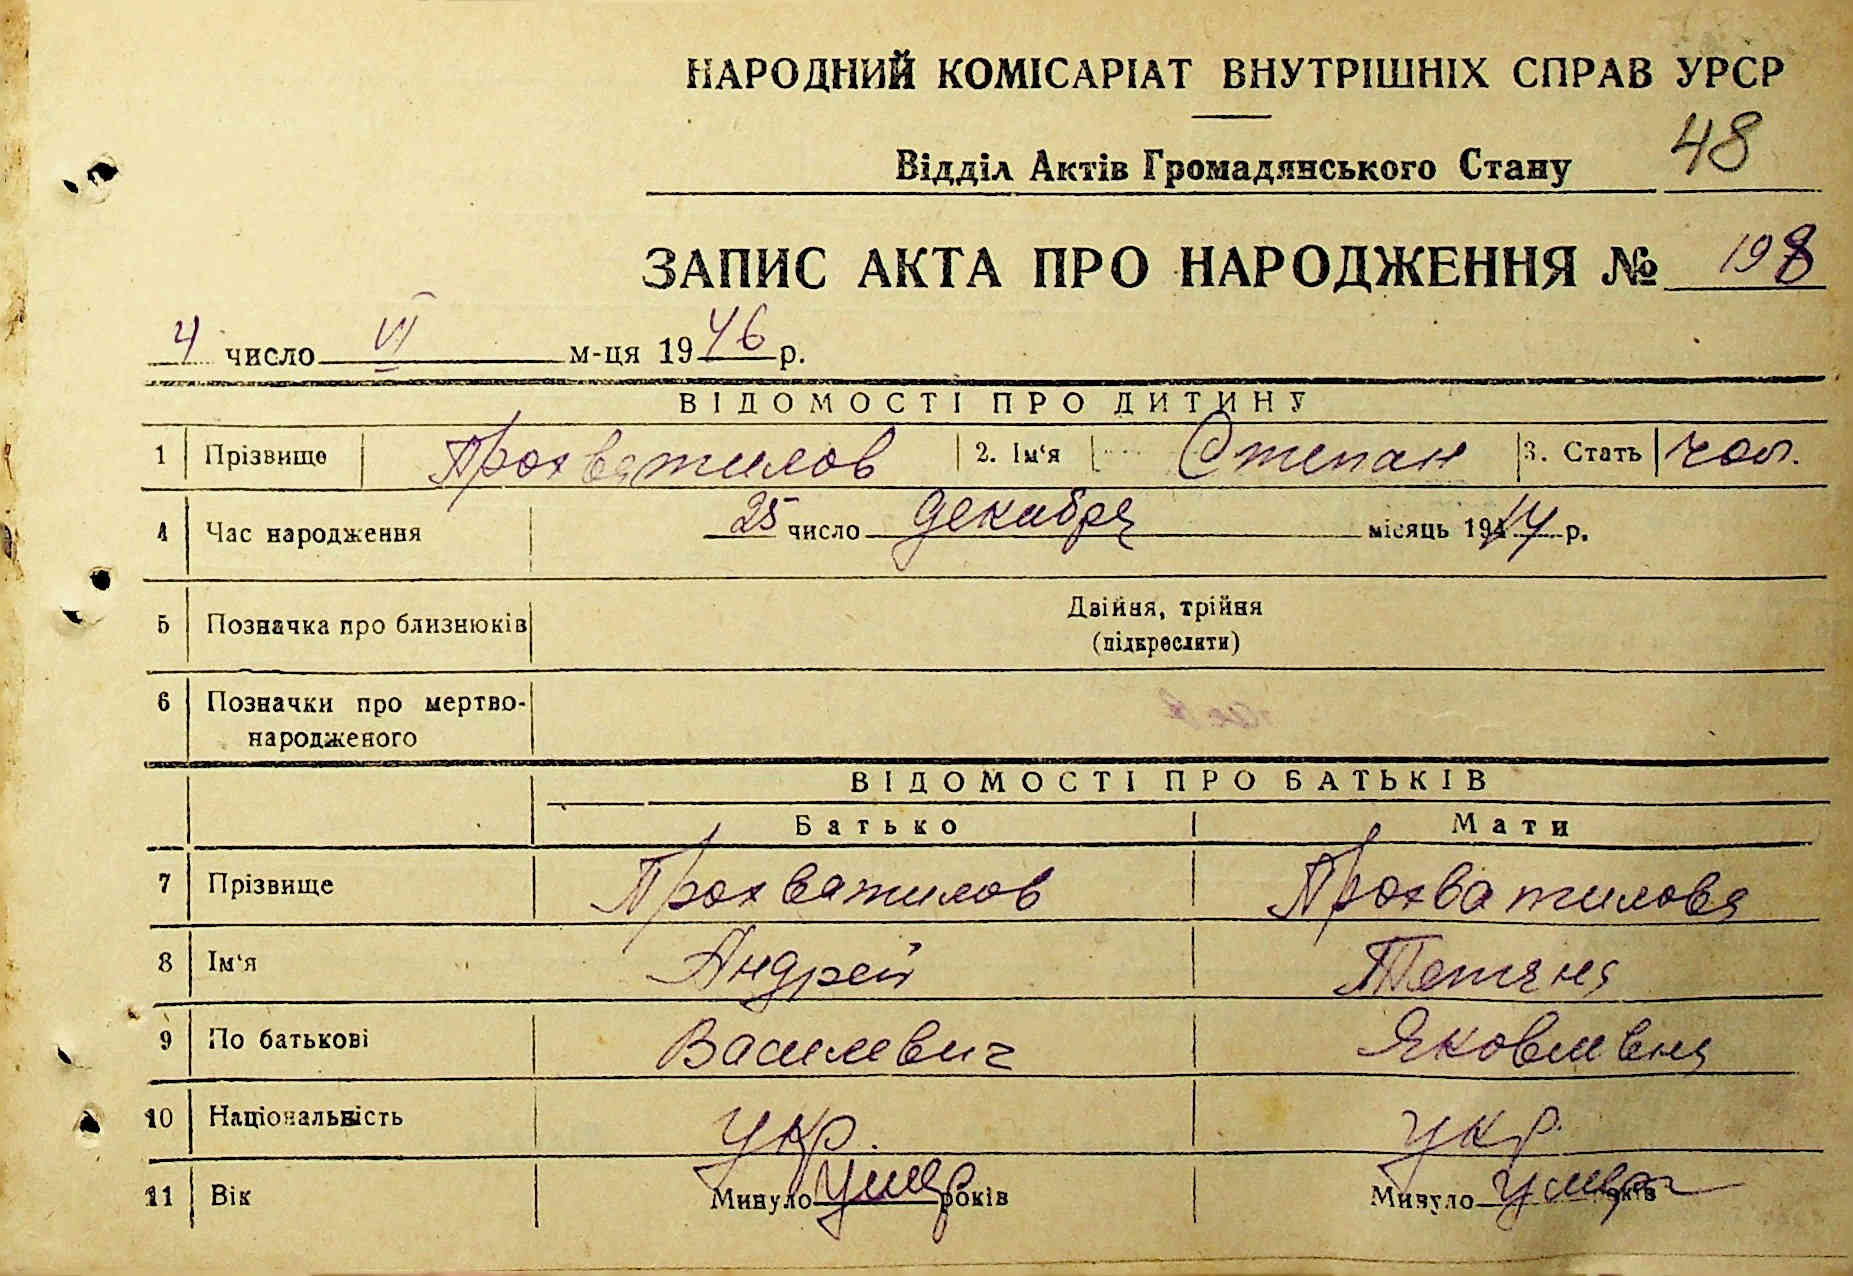 НАРОДНИЙ КОМІСАРІАТ ВНУТРІШНІХ СПРАВ УРСР
48
Відділ Актів Громадянського Стану
ЗАПИС АКТА ПРО НАРОДЖЕННЯ № 198
4 число VI м-ця 1946 р.
ВІДОМОСТІ ПРО ДИТИНУ
1 Прізвище Прохватилов 2. Ім'я Степан 3. Стать чол.
4 Час народження 25 число декабря місяць 1914 р.
5 Позначка про близнюків Двійня, трійня
(підкреслити)
6 Позначки про мертво-
народженого
ВІДОМОСТІ ПРО БАТЬКІВ
Батько Мати
7 Прізвище Прохватилов Прохватилова
8 Ім'я Андрей Тетяна
9 По батькові Василевич Яковлевна
10 Національність укр. укр.
11 Вік Минуло умер років Минуло умерла років